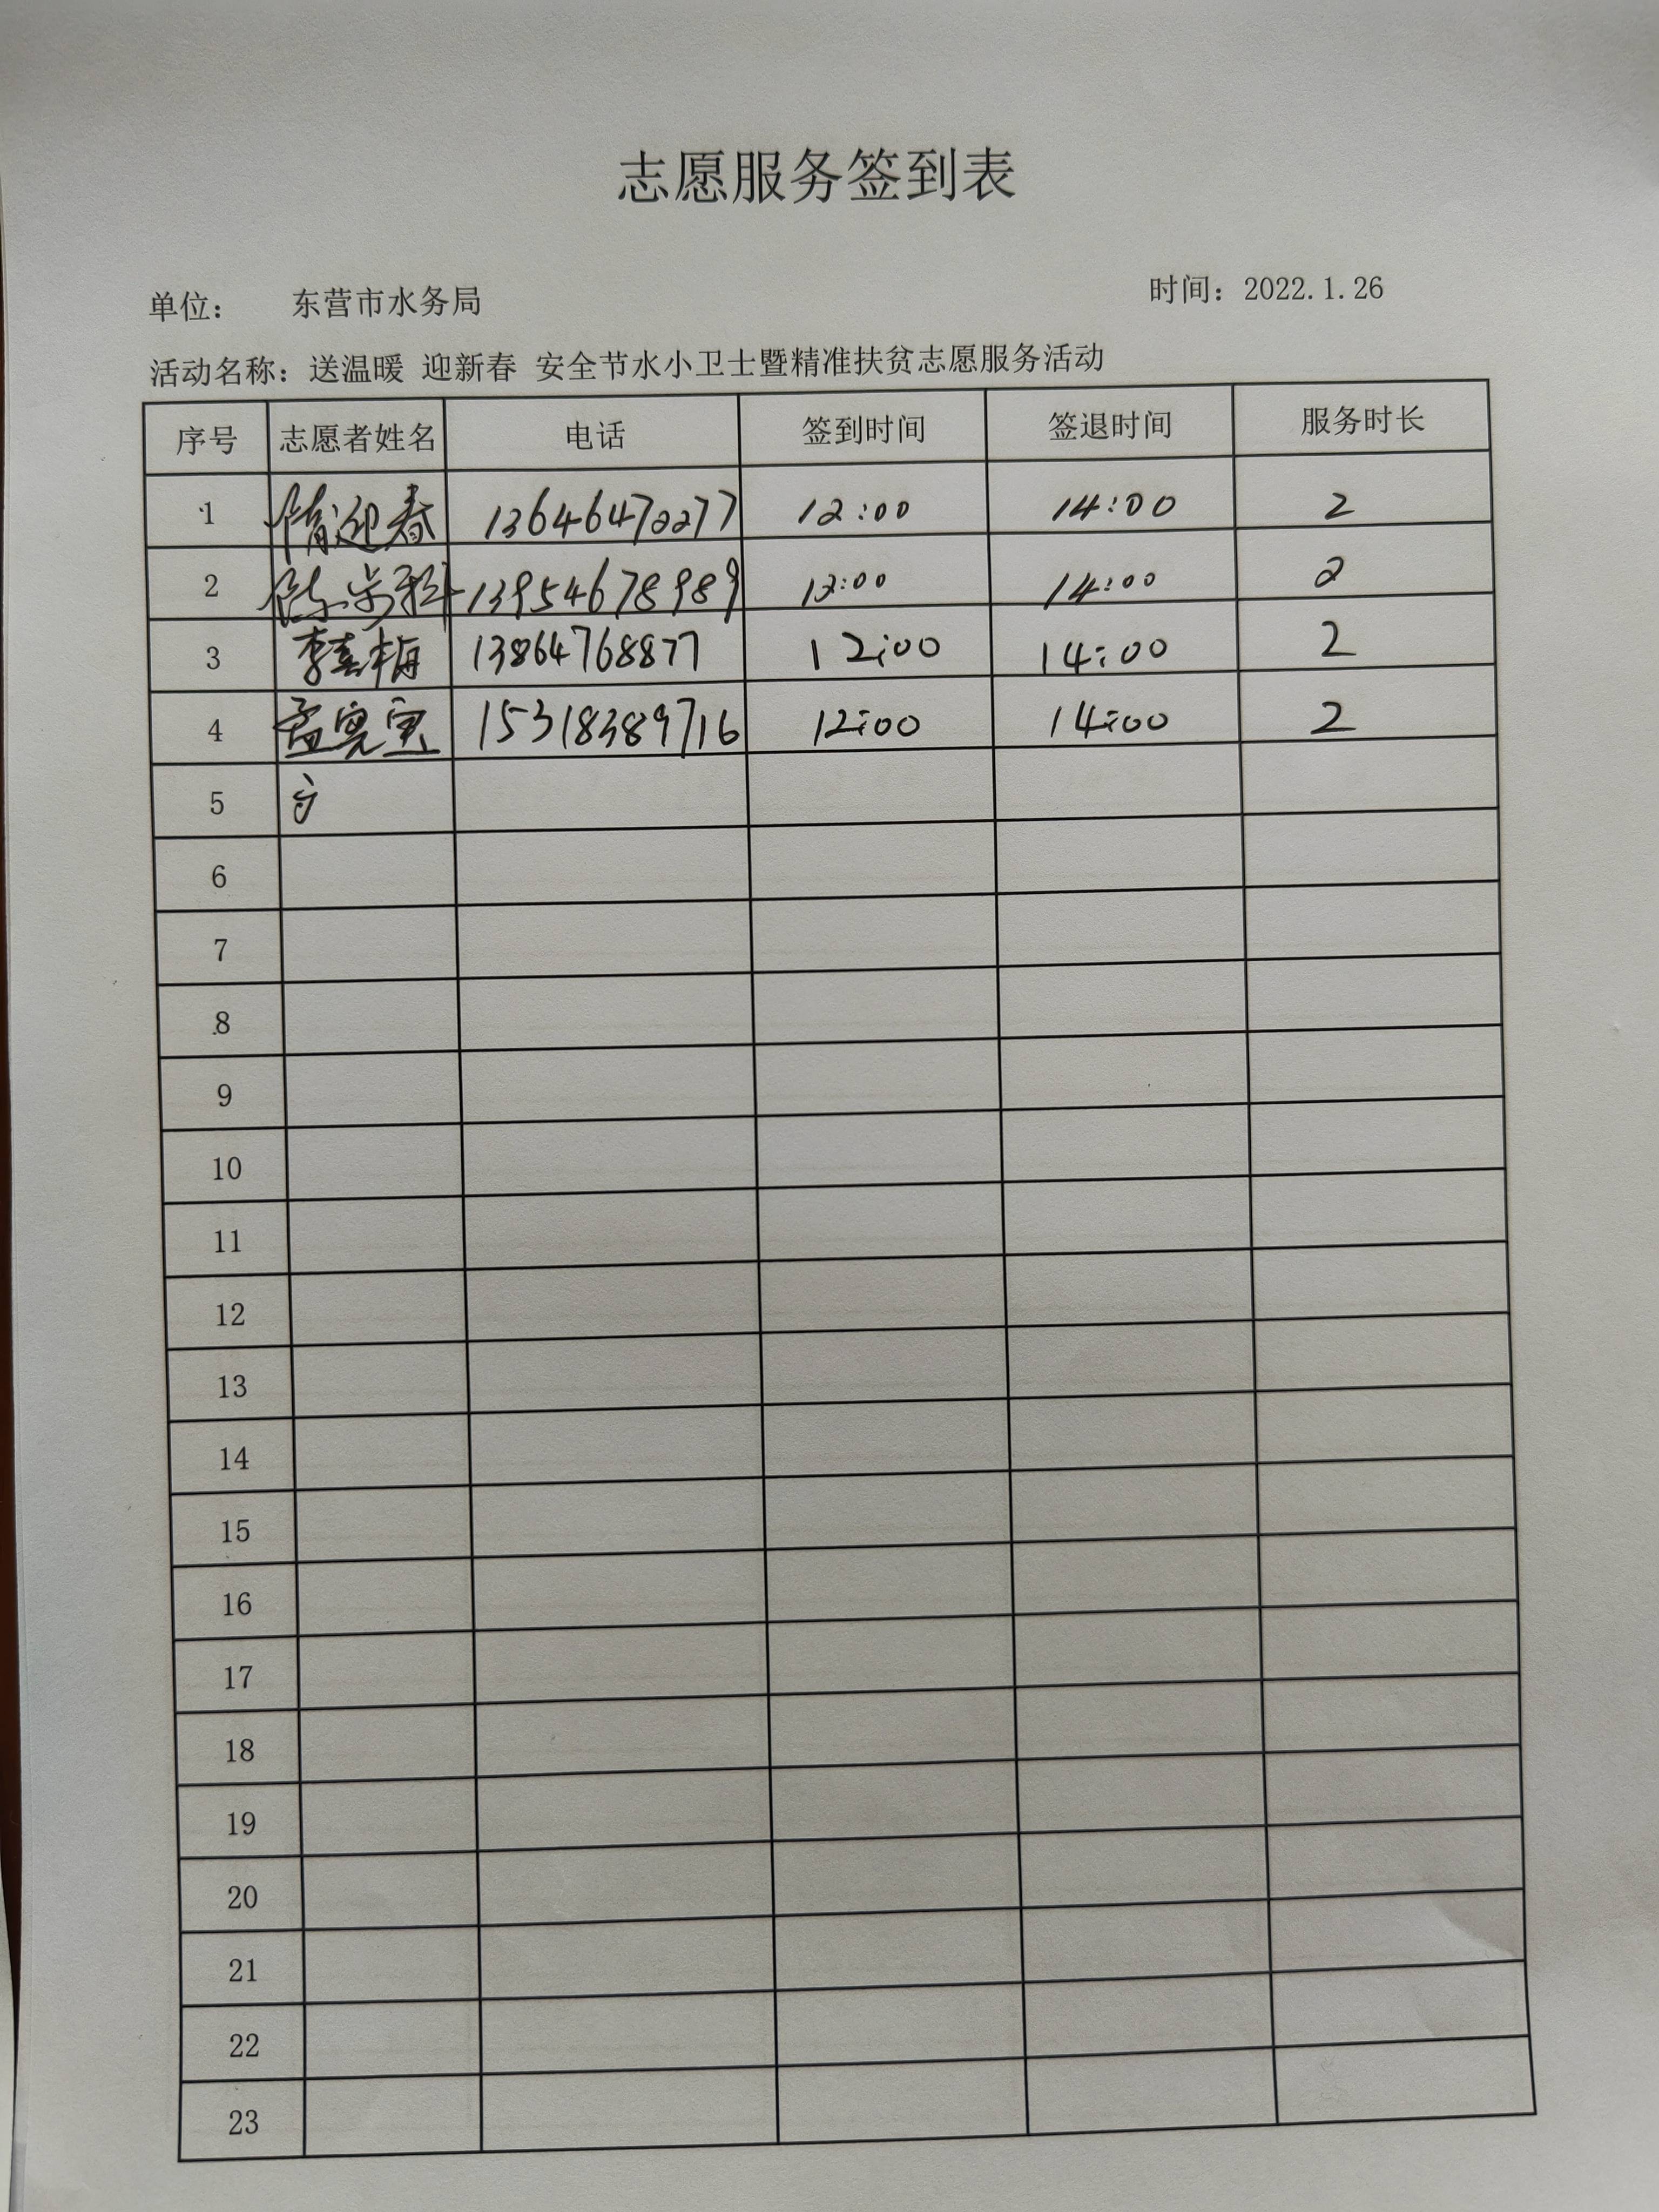 志愿服务签到表
单位： 东营市水务局 时间：2022.1.26
活动名称：送温暖 迎新春 安全节水小卫士暨精准扶贫志愿服务活动
序号 志愿者姓名 电话 签到时间 签退时间 服务时长
1 隋迎春 13646472277 12:00 14:00 2
2 13954678989 12:00 14:00 2
3 李嘉梅 13864768877 12:00 14:00 2
4 15318389716 12:00 14:00 2
5
6
7
8
9
10
11
12
13
14
15
16
17
18
19
20
21
22
23